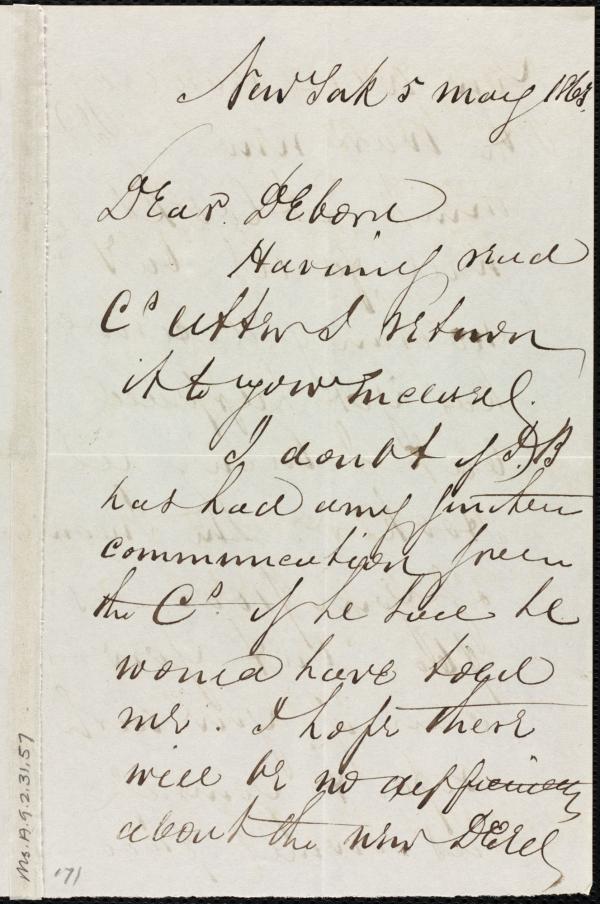 New York 5 May 1863.
Dear Deborah
Having read
C's letter I return
it to you inclosed.
I doubt if D.B
has had any further
communication from
the C's. if he had he
would have told
me. I hope there
will be no difficulty
about the new Deed
Ms. A.9.2.31.57
171